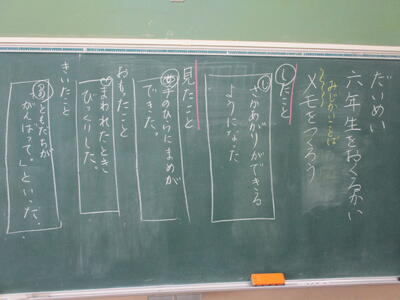 だいめい
六年生をおくるかい
みじかいことば
メモをつくろう
しだこと
し
さかあがりができる
ようになった
見たこと
手のひらにまめが
できた。
おもったこと
まわれたとき
びっくりした。
きいたこと
ともだちが
「がんばって。」といった。